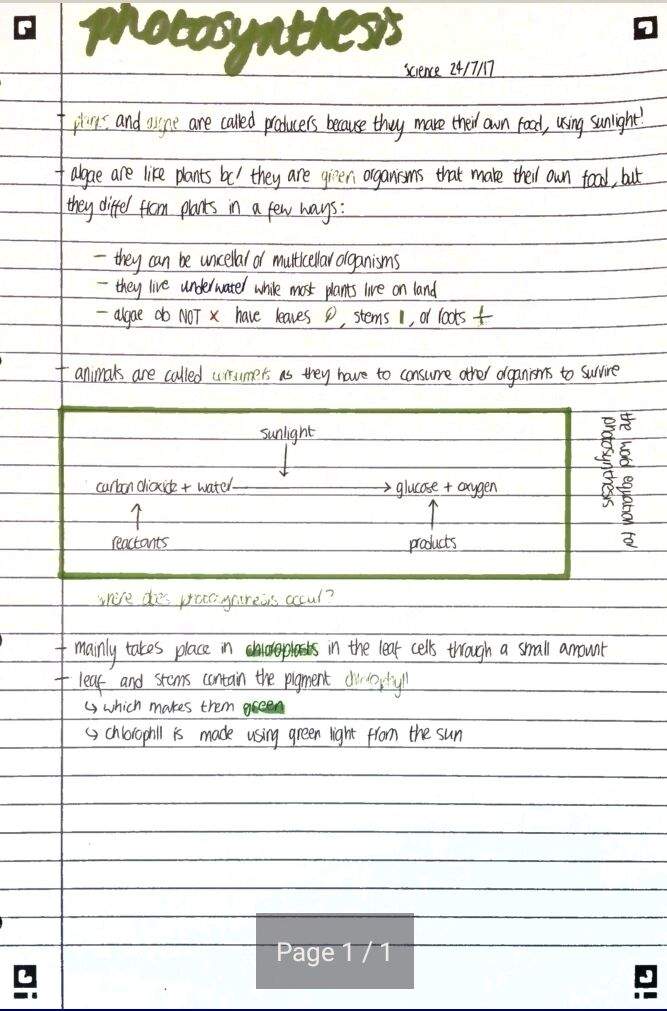 photosynthesis
science 24/7/17
- plants and algae are called producers because they make their own food, using sunlight!
- algae are like plants bc/ they are green organisms that make their own food, but
they differ from plants in a few ways:
- they can be unicellar or multicellar organisms
- they live underwater while most plants live on land
- algae do NOT x have leaves, stems, or roots
- animals are called consumers as they have to consume other organisms to survive
sunlight
carbon dioxide + water → glucose + oxygen
reactants
products
the word equation for
photosynthesis
where does photosynthesis occur?
- mainly takes place in chloroplasts in the leaf cells through a small amount
- leaf and stems contain the pigment chlorophyll
↳ which makes them green
↳ chlorophll is made using green light from the sun
Page 1 / 1